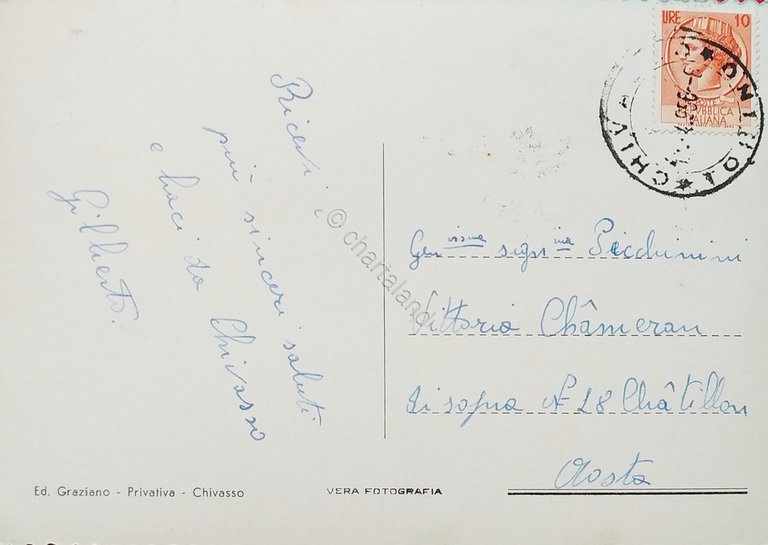 LIRE 10
POSTE
REPUBBLICA
ITALIANA
CHIVASSO * TORINO *
Ricevi i
più sinceri saluti
e baci da Chivasso
Gilberto.
Gen issima sigr ina Picchinini
Vittoria Châmeran
di sopra N 28 Châtillon
Aosta
© chartaland
Ed. Graziano - Privativa - Chivasso
VERA FOTOGRAFIA